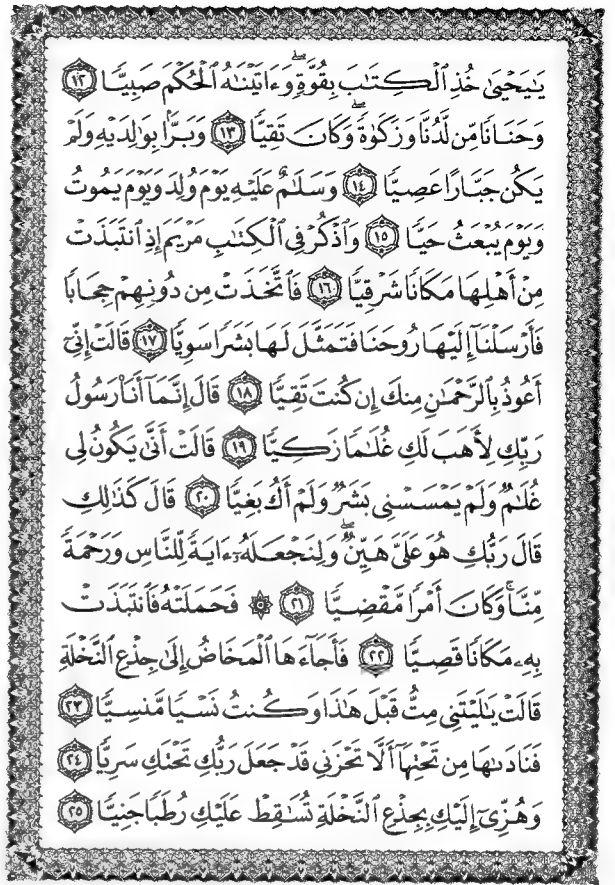 يَٰيَحْيَىٰ خُذِ ٱلْكِتَٰبَ بِقُوَّةٍۖ وَءَاتَيْنَٰهُ ٱلْحُكْمَ صَبِيًّا ١٢
وَحَنَانًا مِّن لَّدُنَّا وَزَكَوٰةًۖ وَكَانَ تَقِيًّا ١٣ وَبَرًّۢا بِوَٰلِدَيْهِ وَلَمْ
يَكُن جَبَّارًا عَصِيًّا ١٤ وَسَلَٰمٌ عَلَيْهِ يَوْمَ وُلِدَ وَيَوْمَ يَمُوتُ
وَيَوْمَ يُبْعَثُ حَيًّا ١٥ وَٱذْكُرْ فِى ٱلْكِتَٰبِ مَرْيَمَ إِذِ ٱنتَبَذَتْ
مِنْ أَهْلِهَا مَكَانًا شَرْقِيًّا ١٦ فَٱتَّخَذَتْ مِن دُونِهِمْ حِجَابًا
فَأَرْسَلْنَآ إِلَيْهَا رُوحَنَا فَتَمَثَّلَ لَهَا بَشَرًا سَوِيًّا ١٧ قَالَتْ إِنِّىٓ
أَعُوذُ بِٱلرَّحْمَٰنِ مِنكَ إِن كُنتَ تَقِيًّا ١٨ قَالَ إِنَّمَآ أَنَا۠ رَسُولُ
رَبِّكِ لِأَهَبَ لَكِ غُلَٰمًا زَكِيًّا ١٩ قَالَتْ أَنَّىٰ يَكُونُ لِى
غُلَٰمٌ وَلَمْ يَمْسَسْنِى بَشَرٌ وَلَمْ أَكُ بَغِيًّا ٢٠ قَالَ كَذَٰلِكِ
قَالَ رَبُّكِ هُوَ عَلَىَّ هَيِّنٌۖ وَلِنَجْعَلَهُۥٓ ءَايَةً لِّلنَّاسِ وَرَحْمَةً
مِّنَّاۚ وَكَانَ أَمْرًا مَّقْضِيًّا ٢١ ۞ فَحَمَلَتْهُ فَٱنتَبَذَتْ
بِهِۦ مَكَانًا قَصِيًّا ٢٢ فَأَجَآءَهَا ٱلْمَخَاضُ إِلَىٰ جِذْعِ ٱلنَّخْلَةِ
قَالَتْ يَٰلَيْتَنِى مِتُّ قَبْلَ هَٰذَا وَكُنتُ نَسْيًا مَّنسِيًّا ٢٣
فَنَادَىٰهَا مِن تَحْتِهَآ أَلَّا تَحْزَنِى قَدْ جَعَلَ رَبُّكِ تَحْتَكِ سَرِيًّا ٢٤
وَهُزِّىٓ إِلَيْكِ بِجِذْعِ ٱلنَّخْلَةِ تُسَٰقِطْ عَلَيْكِ رُطَبًا جَنِيًّا ٢٥